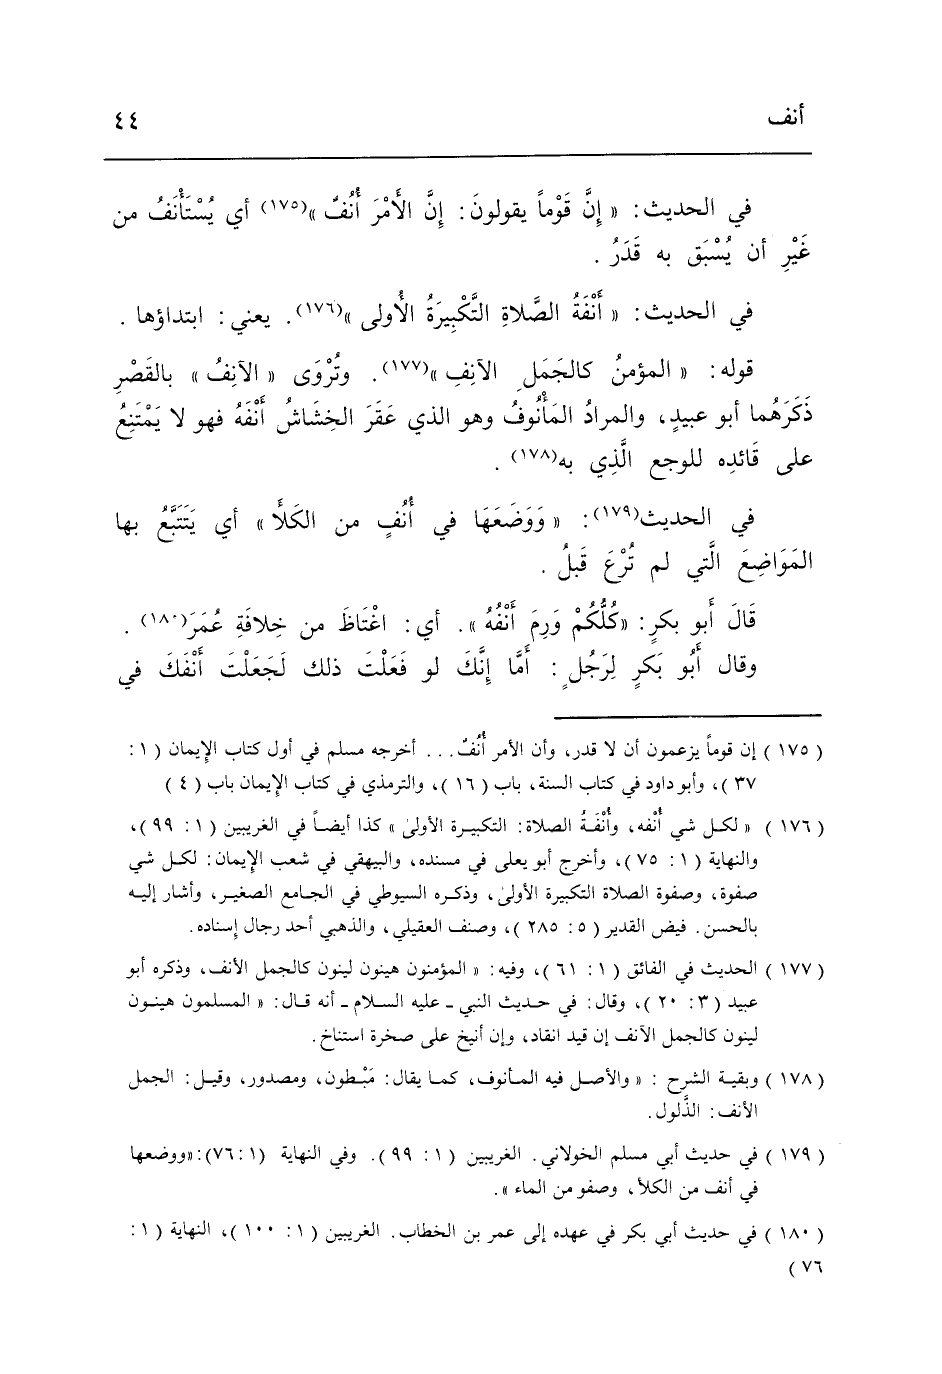 أنف ٤٤
في الحديث: « إِنَّ قَوْماً يقولونَ: إِنَّ الأَمْرَ أُنُفٌ »(١٧٥) أي يُسْتَأْنَفُ من
غَيْرِ أن يُسْبَق به قَدَرُ .
في الحديث: « أَنْفَةُ الصَّلاةِ التَّكْبِيرَةُ الأُولى »(١٧٦). يعني: ابتداؤها .
قوله: « المؤمنُ كالجَمَلِ الآنِفِ »(١٧٧). وتُرْوَى « الآنِفُ » بالقَصْرِ
ذَكَرَهُما أبو عبيدٍ، والمرادُ المَأْنُوفُ وهو الذي عَقَرَ الخِشَاشُ أَنْفَهُ فهو لا يَمْتَنِعُ
على قَائدِه للوجع الَّذِي به(١٧٨) .
في الحديث(١٧٩): « وَوَضَعَهَا في أُنُفٍ من الكَلأَ » أي يَتَتَبَّعُ بها
المَوَاضِعَ الَّتي لم تُرْعَ قَبلُ .
قَالَ أَبو بكرٍ: «كُلُّكُمْ وَرِمَ أَنْفُهُ ». أي: اغْتَاظَ من خِلافَةِ عُمَرَ(١٨٠) .
وقال أَبُو بَكرٍ لِرَجُلٍ : أَمَّا إِنَّكَ لو فَعَلْتَ ذلك لَجَعَلْتَ أَنْفَكَ في
( ١٧٥ ) إن قوماً يزعمون أن لا قدر، وأن الأمر أُنُفٌ... أخرجه مسلم في أول كتاب الإيمان ( ١ :
٣٧ )، وأبو داود في كتاب السنة، باب ( ١٦ )، والترمذي في كتاب الإيمان باب ( ٤ )
( ١٧٦ ) « لكل شي أُنْفه، وأُنْفَةُ الصلاة: التكبيرة الأولىٰ » كذا أيضاً في الغريبين ( ١ : ٩٩ )،
والنهاية ( ١ : ٧٥ )، وأخرج أبو يعلى في مسنده، والبيهقي في شعب الإيمان: لكل شي
صفوة، وصفوة الصلاة التكبيرة الأولىٰ، وذكره السيوطي في الجامع الصغير، وأشار إليه
بالحسن. فيض القدير ( ٥ : ٢٨٥ )، وصنف العقيلي، والذهبي أحد رجال إسناده.
( ١٧٧ ) الحديث في الفائق ( ١ : ٦١ )، وفيه: « المؤمنون هينون لينون كالجمل الأنف، وذكره أبو
عبيد ( ٣ : ٢٠ )، وقال: في حديث النبي ـ عليه السلام ـ أنه قال: « المسلمون هينون
لينون كالجمل الآنف إن قيد انقاد، وإن أنيخ على صخرة استناخ.
( ١٧٨ ) وبقية الشرح : « والأصل فيه المأنوف، كما يقال: مَبْطون، ومصدور، وقيل: الجمل
الأنف: الذَّلول.
( ١٧٩ ) في حديث أبي مسلم الخولاني. الغريبين ( ١ : ٩٩ ). وفي النهاية (١ :٧٦):«ووضعها
في أنف من الكلأ، وصفو من الماء ».
( ١٨٠ ) في حديث أبي بكر في عهده إلى عمر بن الخطاب. الغريبين ( ١ : ١٠٠ )، النهاية ( ١ :
٧٦ )